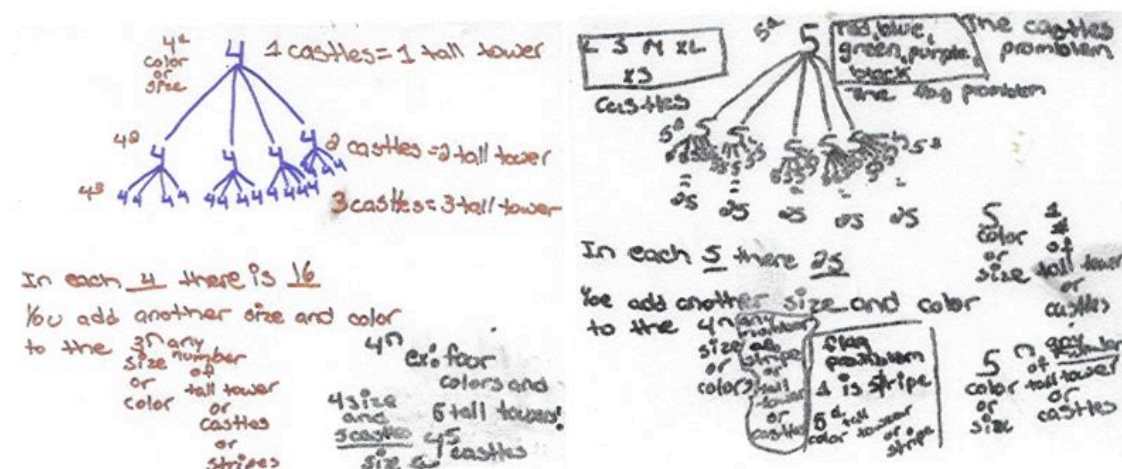 4¹
color
or
size
4
1 castles = 1 tall tower
4²
4 4 4 4
2 castles = 2 tall tower
4³
4 4 4 4 4 4 4 4 4 4 4 4 4 4 4 4
3 castles = 3 tall tower
In each 4 there is 16
You add another size and color
to the 3ⁿ any
size number
or of
color tall tower
or
castles
or
stripes
4ⁿ
ex: four
colors and
5 tall towers!
4 size
and
5 castles
4⁵
castles
L S M XL
XS
castles
5¹
5
red, blue,
green, purple,
black
The castles
promblem
The flag promblem
5²
5 5 5 5 5
5³
= = = = =
25 25 25 25 25
In each 5 there 25
You add another size and color
to the 4ⁿ any
number
size of
or stripe
color or
tall
tower
or
castles
flag
promblem
1 is stripe
tall
color tower
or
stripe
5 1
color #
or of
size tall tower
or
castles
5 n any
number
color of
tall tower
or or
size castles